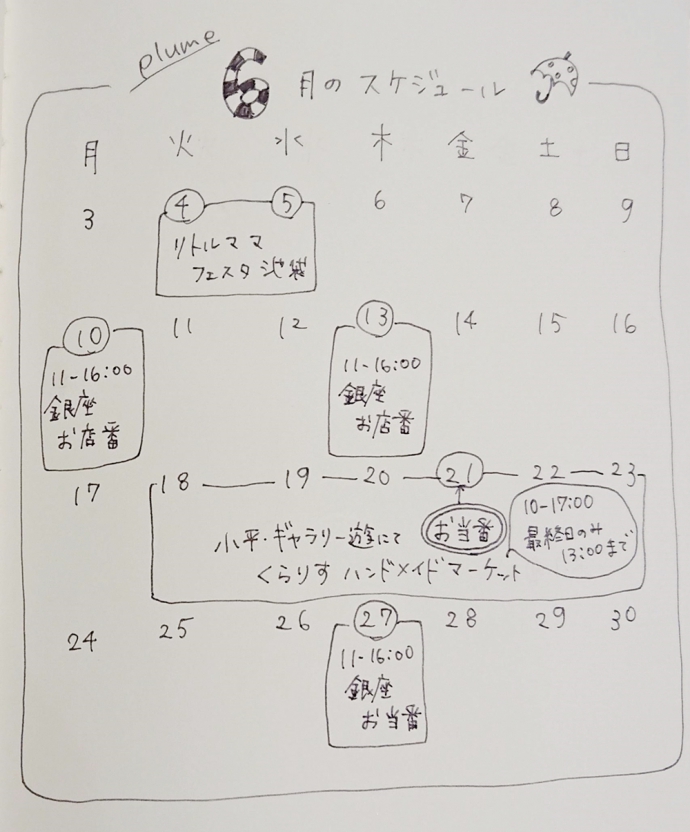 plume
6月のスケジュール
月 火 水 木 金 土 日
3 4 5 6 7 8 9
リトルママ
フェスタ池袋
10 11 12 13 14 15 16
11-16:00
銀座
お店番
11-16:00
銀座
お店番
17 18 19 20 21 22 23
小平・ギャラリー遊にて
くらりす ハンドメイドマーケット
お当番
10-17:00
最終日のみ
13:00まで
24 25 26 27 28 29 30
11-16:00
銀座
お当番